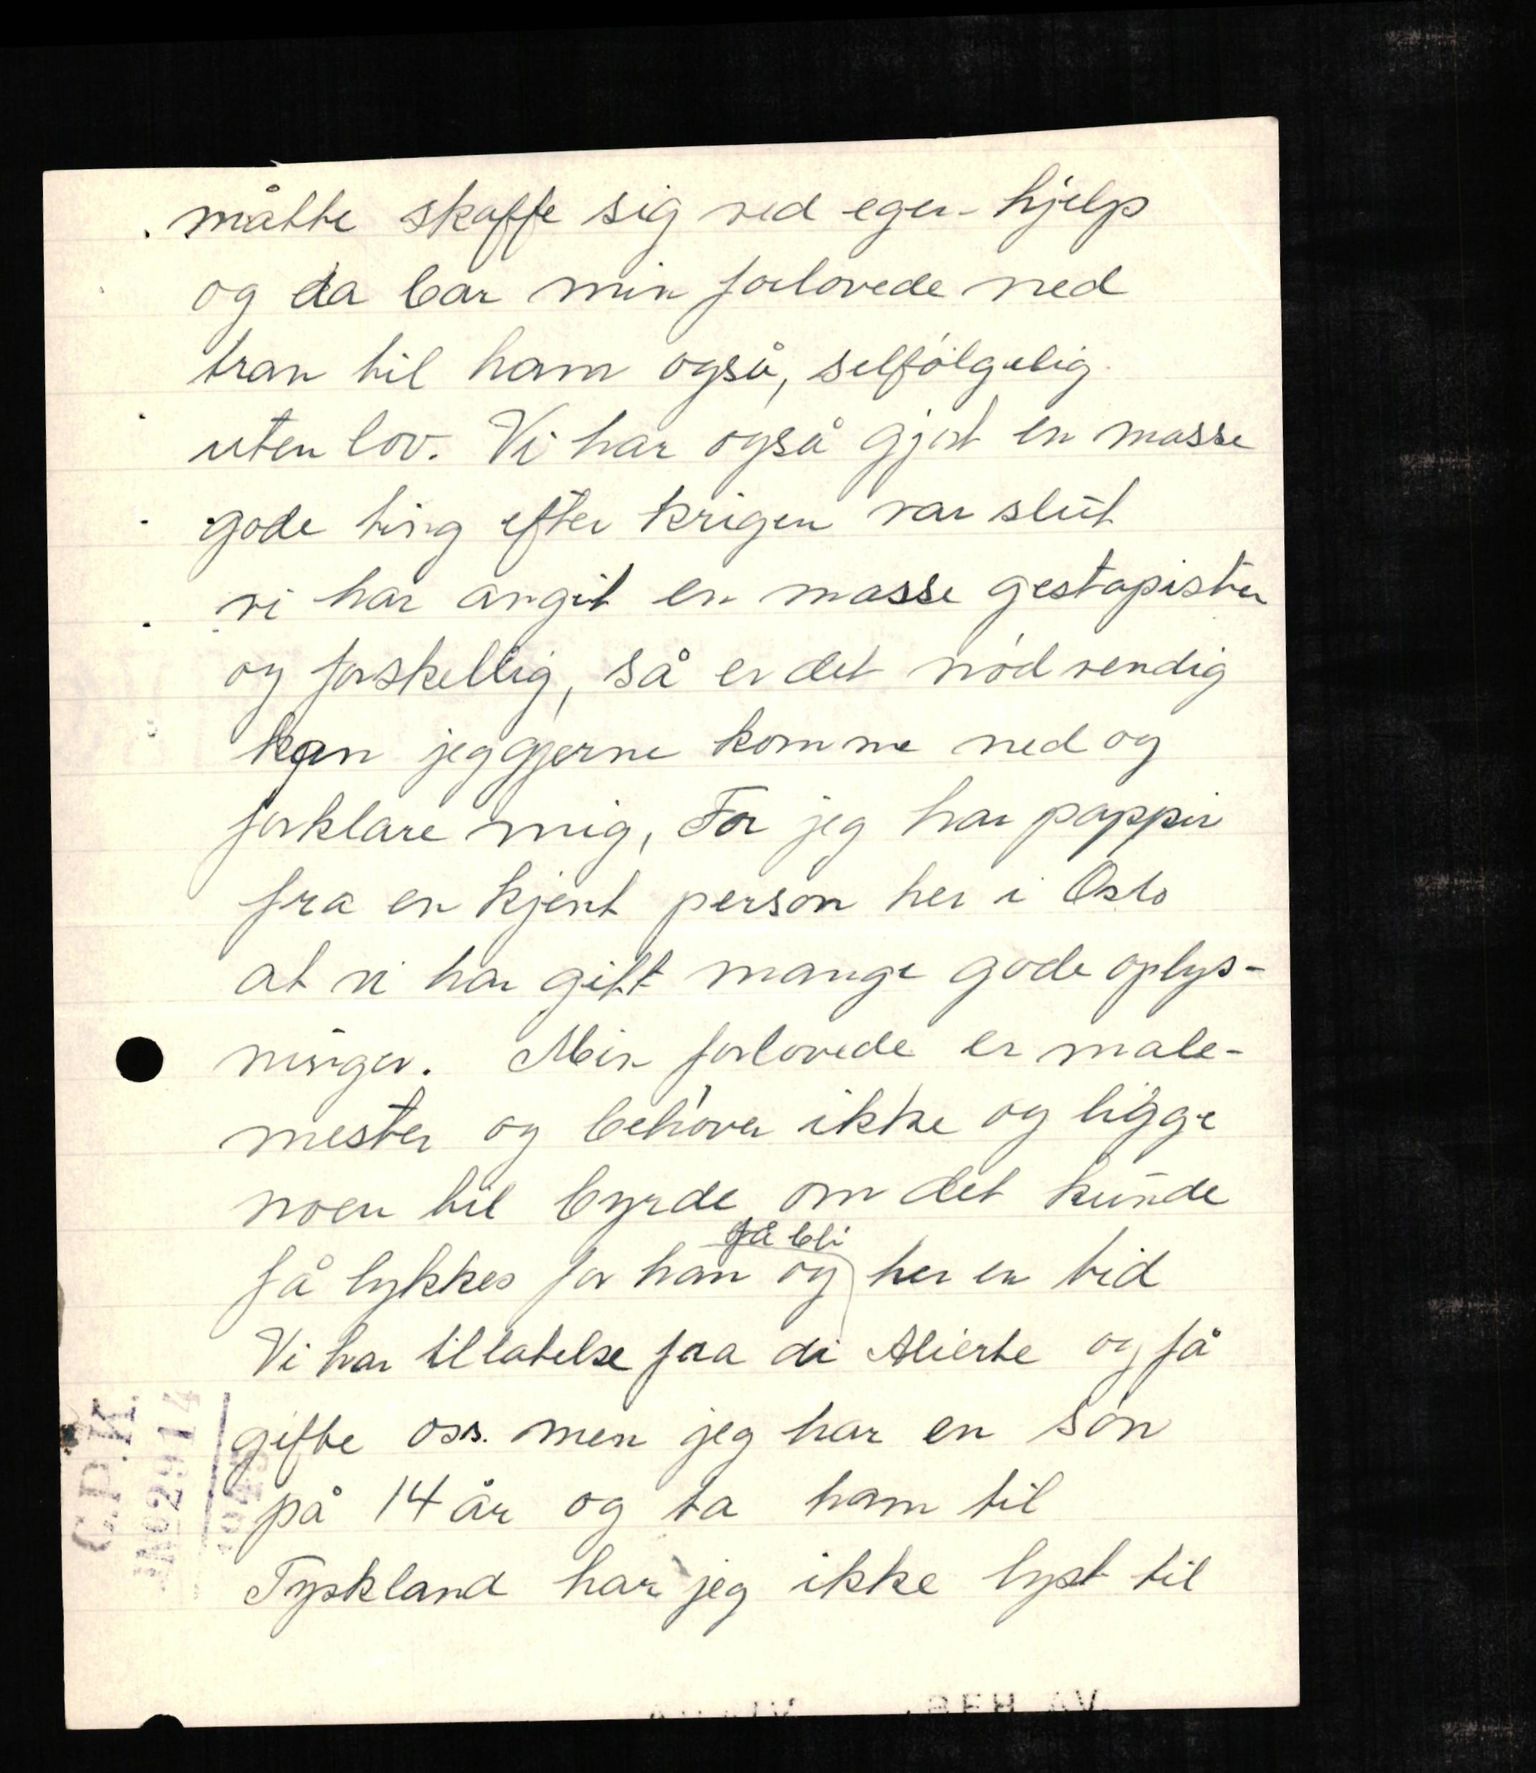 måtte skaffe sig ved egen hjelp
og da bar min forlovede ned
tran til ham også, selfølgelig
uten lov. Vi har også gjort en masse
gode ting efter krigen var slut
vi har angit en masse gestapister
og forskellig, så er det nødvendig
kan jeg gjerne komme ned og
forklare mig, For jeg har pappir
fra en kjent person her i Oslo
at vi har gitt mange gode oplys-
ninger. Min forlovede er male-
mester og behøver ikke og ligge
noen til byrde om det kunde
få bli
få lykkes for han og her en tid
Vi har tillatelse fra di Alierte og få
gifte oss. men jeg har en søn
på 14 år og ta ham til
Tyskland har jeg ikke lyst til
C.P.K.
No 2914
1945